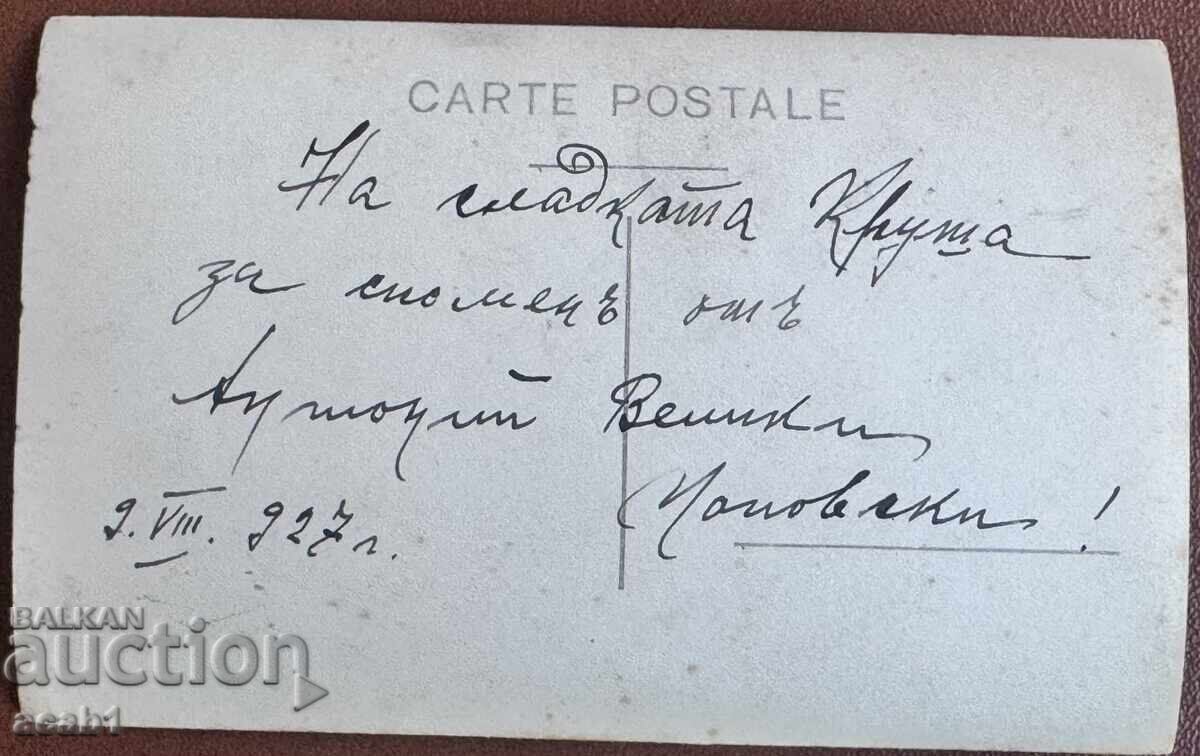 CARTE POSTALE
На сладката Круша
за споменъ отъ
Велики
Поповски!
9.VIII.927г.
BALKAN
auction
acab1